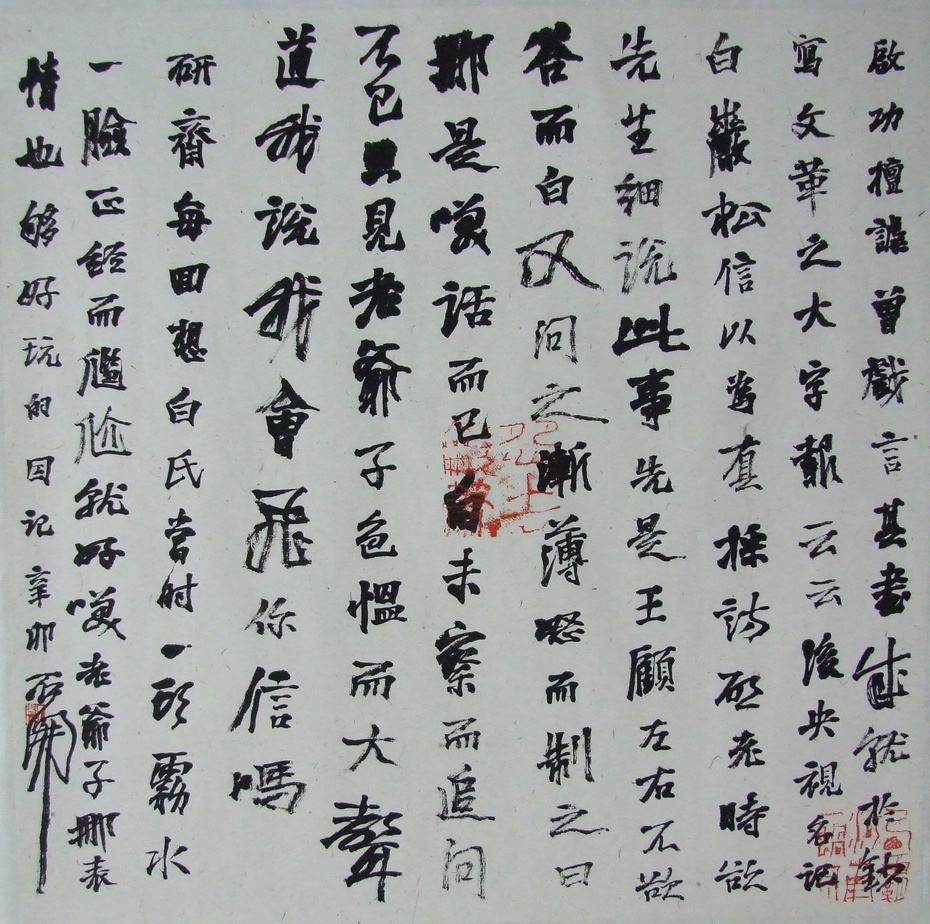 啟功擅謔曾戲言其書成就於鈔
寫文革之大字報云云後央視名記
白巖松信以為真採訪啟老時欲
先生細説此事先是王顧左右不欲
答而白又問之漸薄怒而制之曰
那是笑話而已白未察而追問
不已只見老爺子色慍而大聲
道我說我會飛你信嗎
研齋每回想白氏當时一頭霧水
一臉正經而尷尬就好笑老爺子那表
情也够好玩的因記辛卯石開